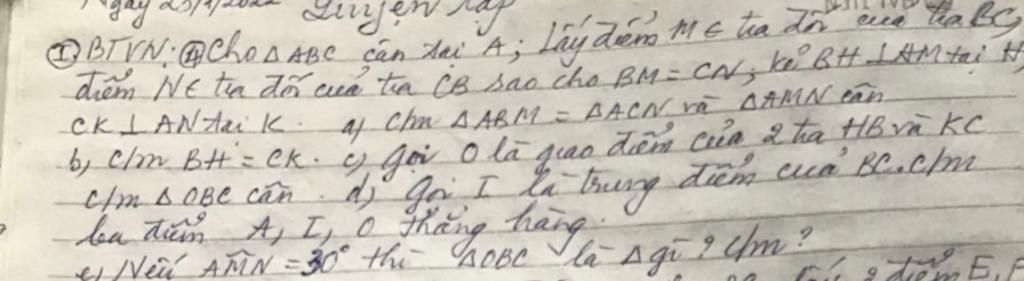 Ngày 25/1/2022 Luyện tập
① BTVN: ④ Cho △ABC cân tại A; Lấy điểm M ∈ tia đối của tia BC,
điểm N ∈ tia đối của tia CB sao cho BM = CN; kẻ BH ⊥ AM tại H,
CK ⊥ AN tại K. a) C/m △ABM = △ACN và △AMN cân
b) C/m BH = CK. c) Gọi O là giao điểm của 2 tia HB và KC
C/m △OBC cân. d) Gọi I là trung điểm của BC. C/m
ba điểm A, I, O thẳng hàng.
e) Nếu AMN = 30° thì △OBC là △ gì? C/m?
điểm E, F